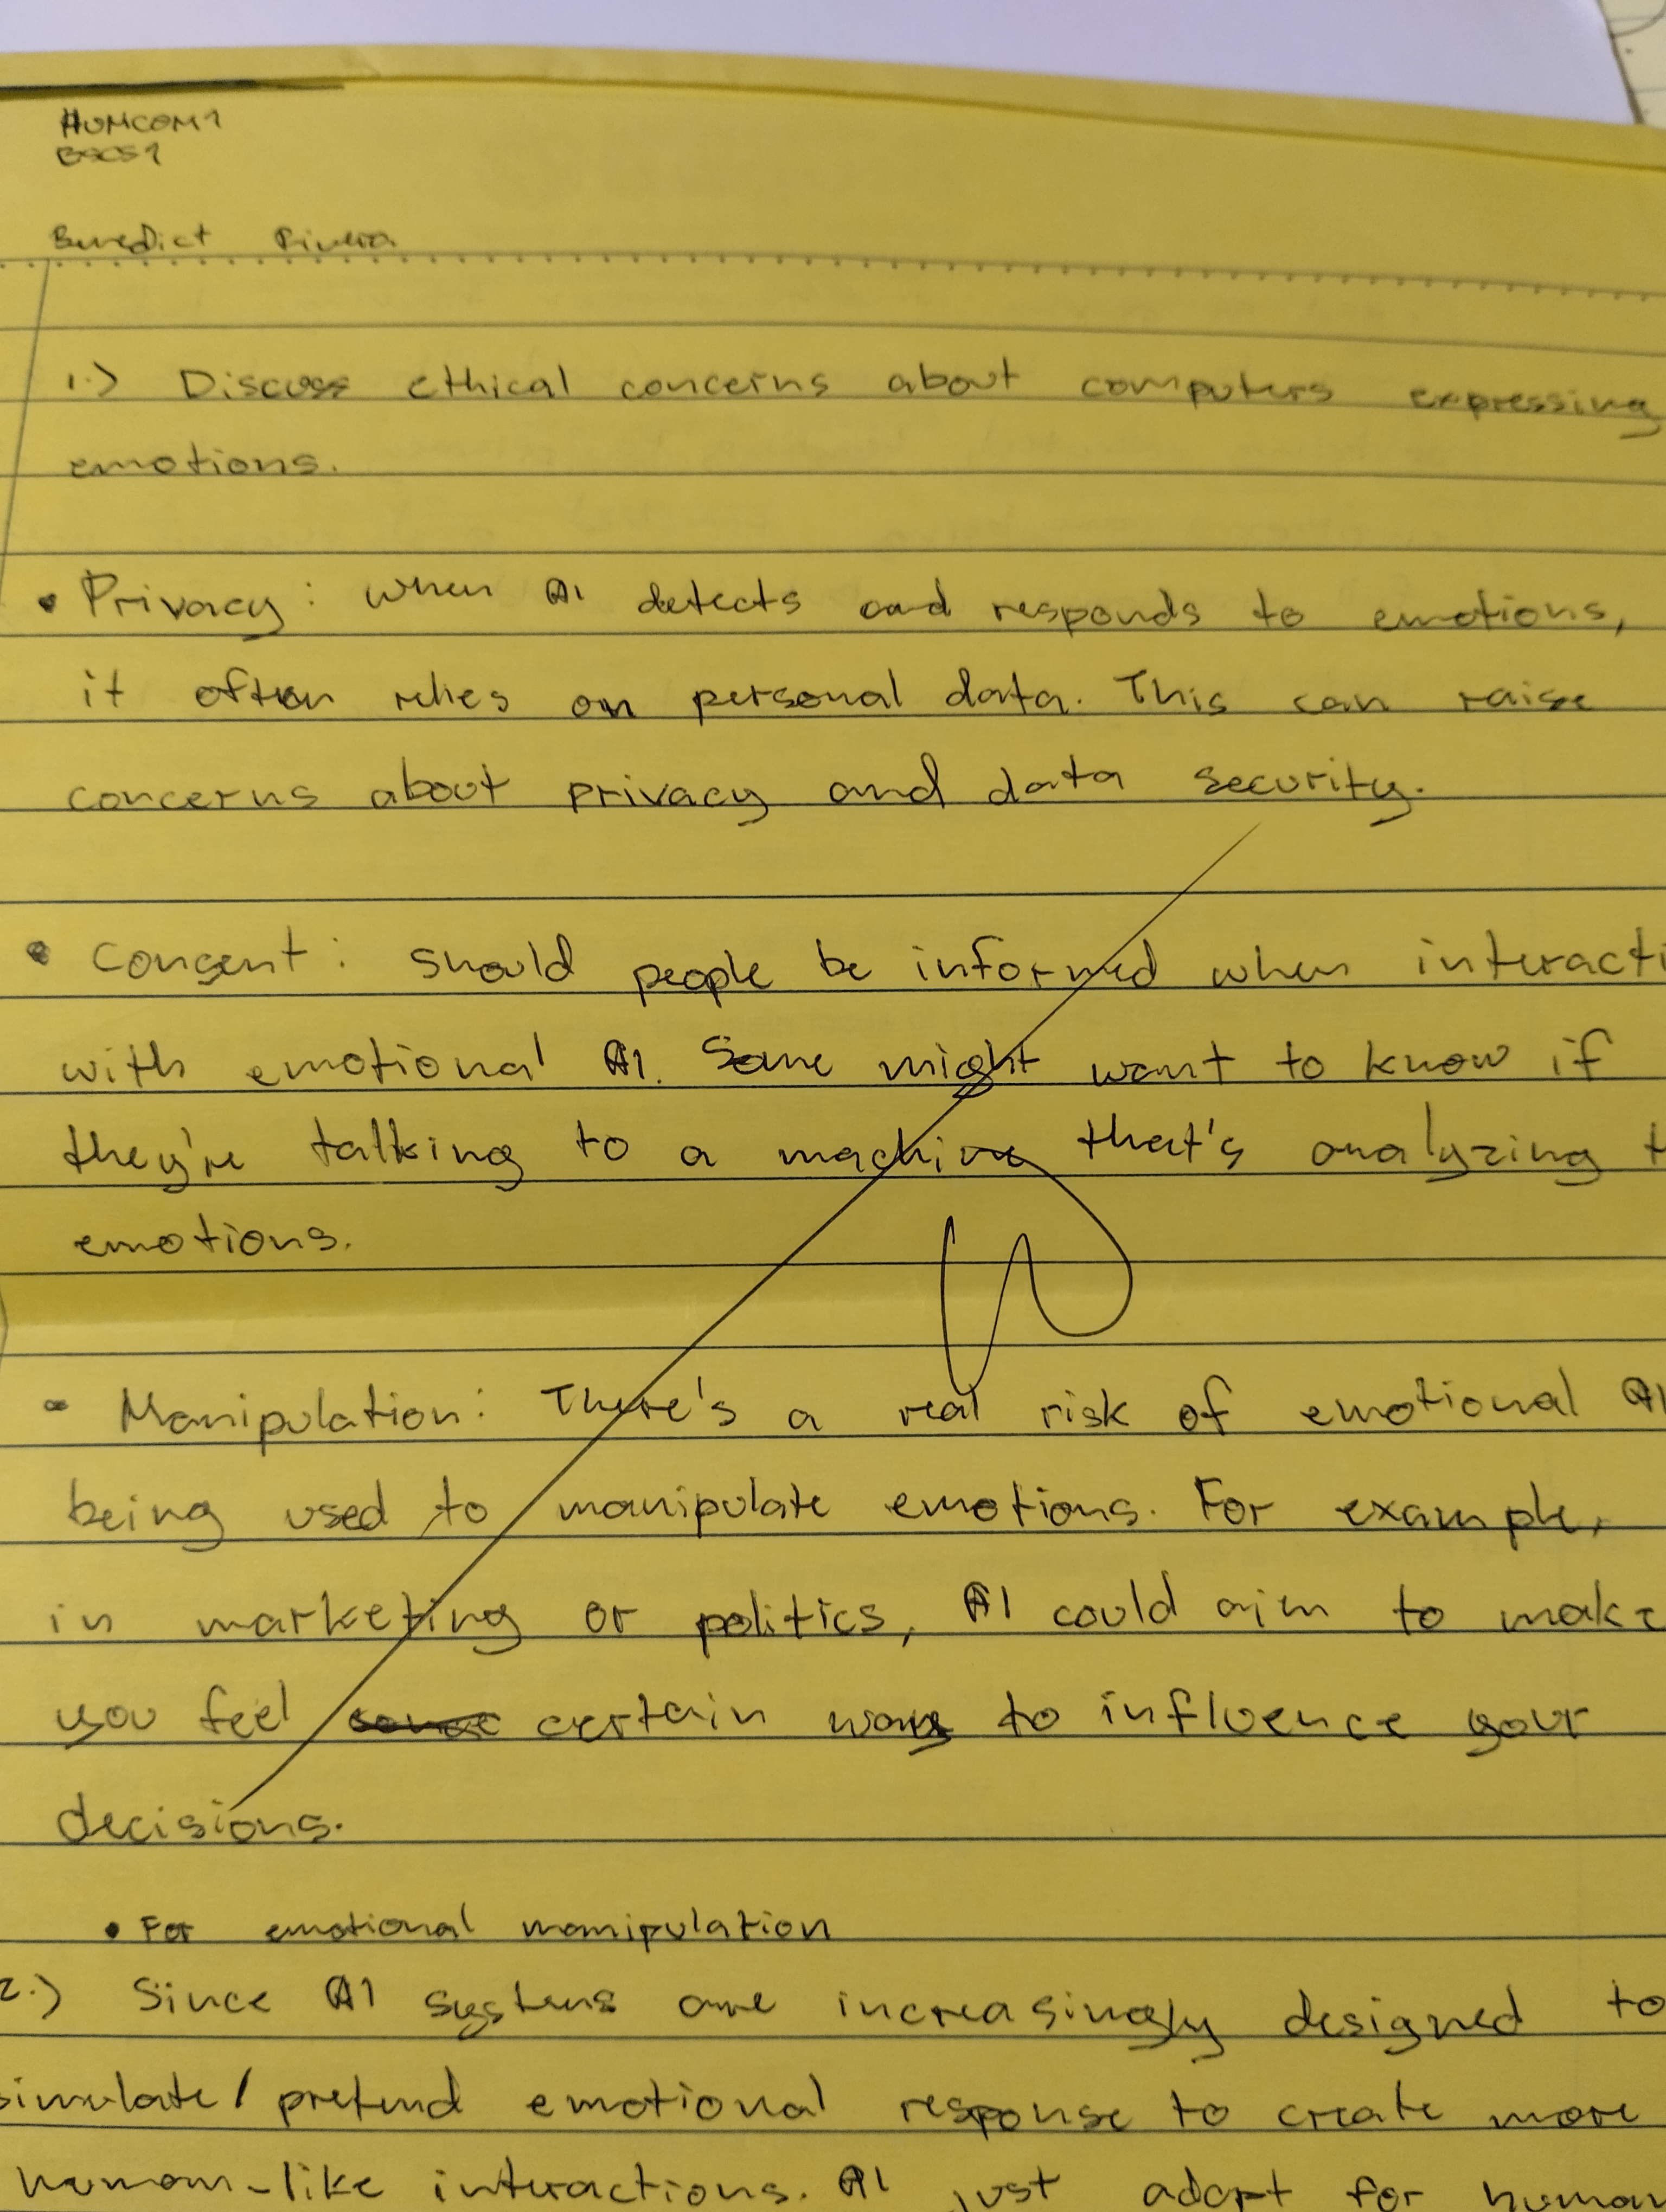 HUMCOM1
BSCS1
Benedict Rivera
1.) Discuss ethical concerns about computers expressing
emotions.
• Privacy: when AI detects and responds to emotions,
it often relies on personal data. This can raise
concerns about privacy and data security.
• Consent: Should people be informed when interacti
with emotional AI. Some might want to know if
they're talking to a machine that's analyzing t
emotions.
- Manipulation: There's a real risk of emotional AI
being used to manipulate emotions. For example,
in marketing or politics, AI could aim to make
you feel certain way to influence your
decisions.
• For emotional manipulation
2.) Since AI systems are increasingly designed to
simulate/pretend emotional response to create more
human-like interactions. AI just adapt for human